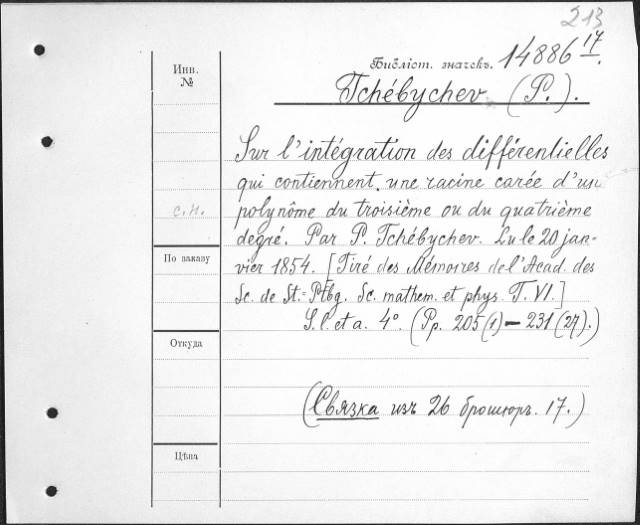 213
Инв.
№
Библіот. значекъ. 14886 17/I.
Tchébychev (P.).
Sur l'intégration des différentielles
qui contiennent une racine carée d'un
polynôme du troisième ou du quatrième
с.н.
degré. Par P. Tchébychev. Lu le 20 jan-
По заказу
vier 1854. [Tiré des Mémoires de l'Acad. des
Sc. de St.=Ptbg. Sc. mathem. et phys. T. VI.]
S. l. et a. 4°. (Pp. 205(1) — 231(27).)
Откуда
(Связка изъ 26 брошюръ. 17.)
Цѣна